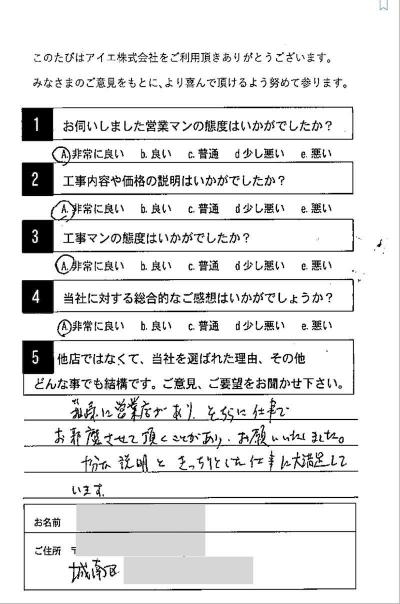 このたびはアイエ株式会社をご利用頂きありがとうございます。
みなさまのご意見をもとに、より喜んで頂けるよう努めて参ります。
1 お伺いしました営業マンの態度はいかがでしたか？
A.非常に良い b.良い c.普通 d少し悪い e.悪い
2 工事内容や価格の説明はいかがでしたか？
A.非常に良い b.良い c.普通 d少し悪い e.悪い
3 工事マンの態度はいかがでしたか？
A.非常に良い b.良い c.普通 d少し悪い e.悪い
4 当社に対する総合的なご感想はいかがでしょうか？
A.非常に良い b.良い c.普通 d少し悪い e.悪い
5 他店ではなくて、当社を選ばれた理由、その他
どんな事でも結構です。ご意見、ご要望をお聞かせ下さい。
に営業店があり、そちらに仕事で
お邪魔させて頂くことがあり、お願いいたしました。
説明ときっちりとした仕事に大満足して
います。
お名前
ご住所 〒
城南区